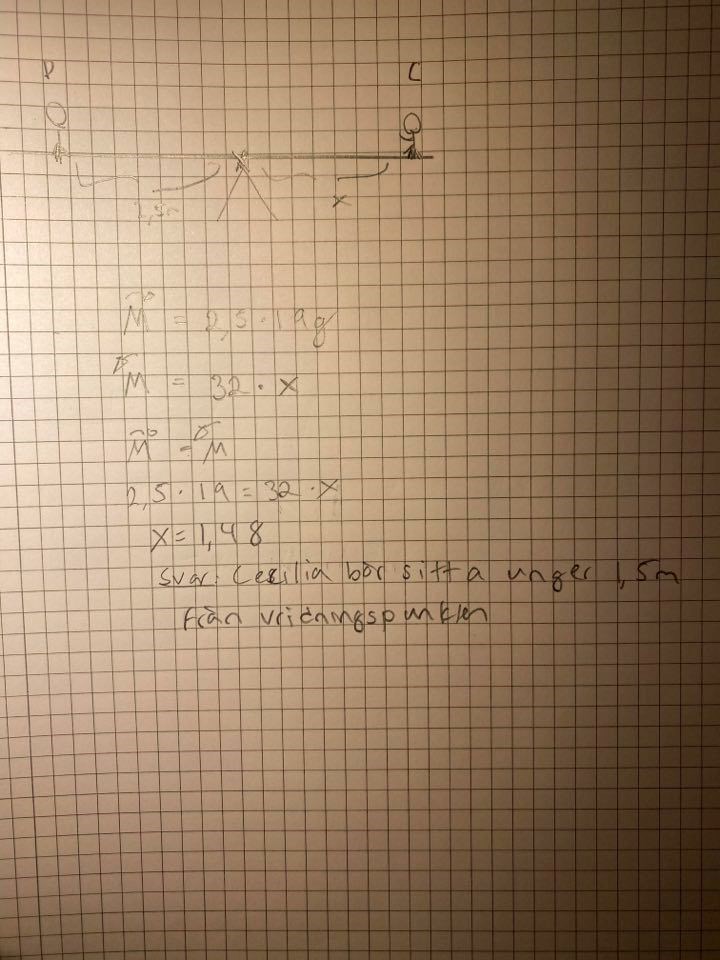 P C
2,5m x
M = 2,5 · 19g
M = 32 · x
M = M
2,5 · 19 = 32 · x
x = 1,48
Svar: Cesilia bör sitta unger 1,5m
från vridningspunkten